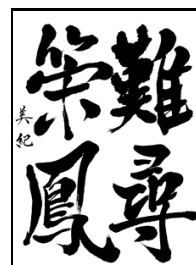 難尋
策鳳
美紀